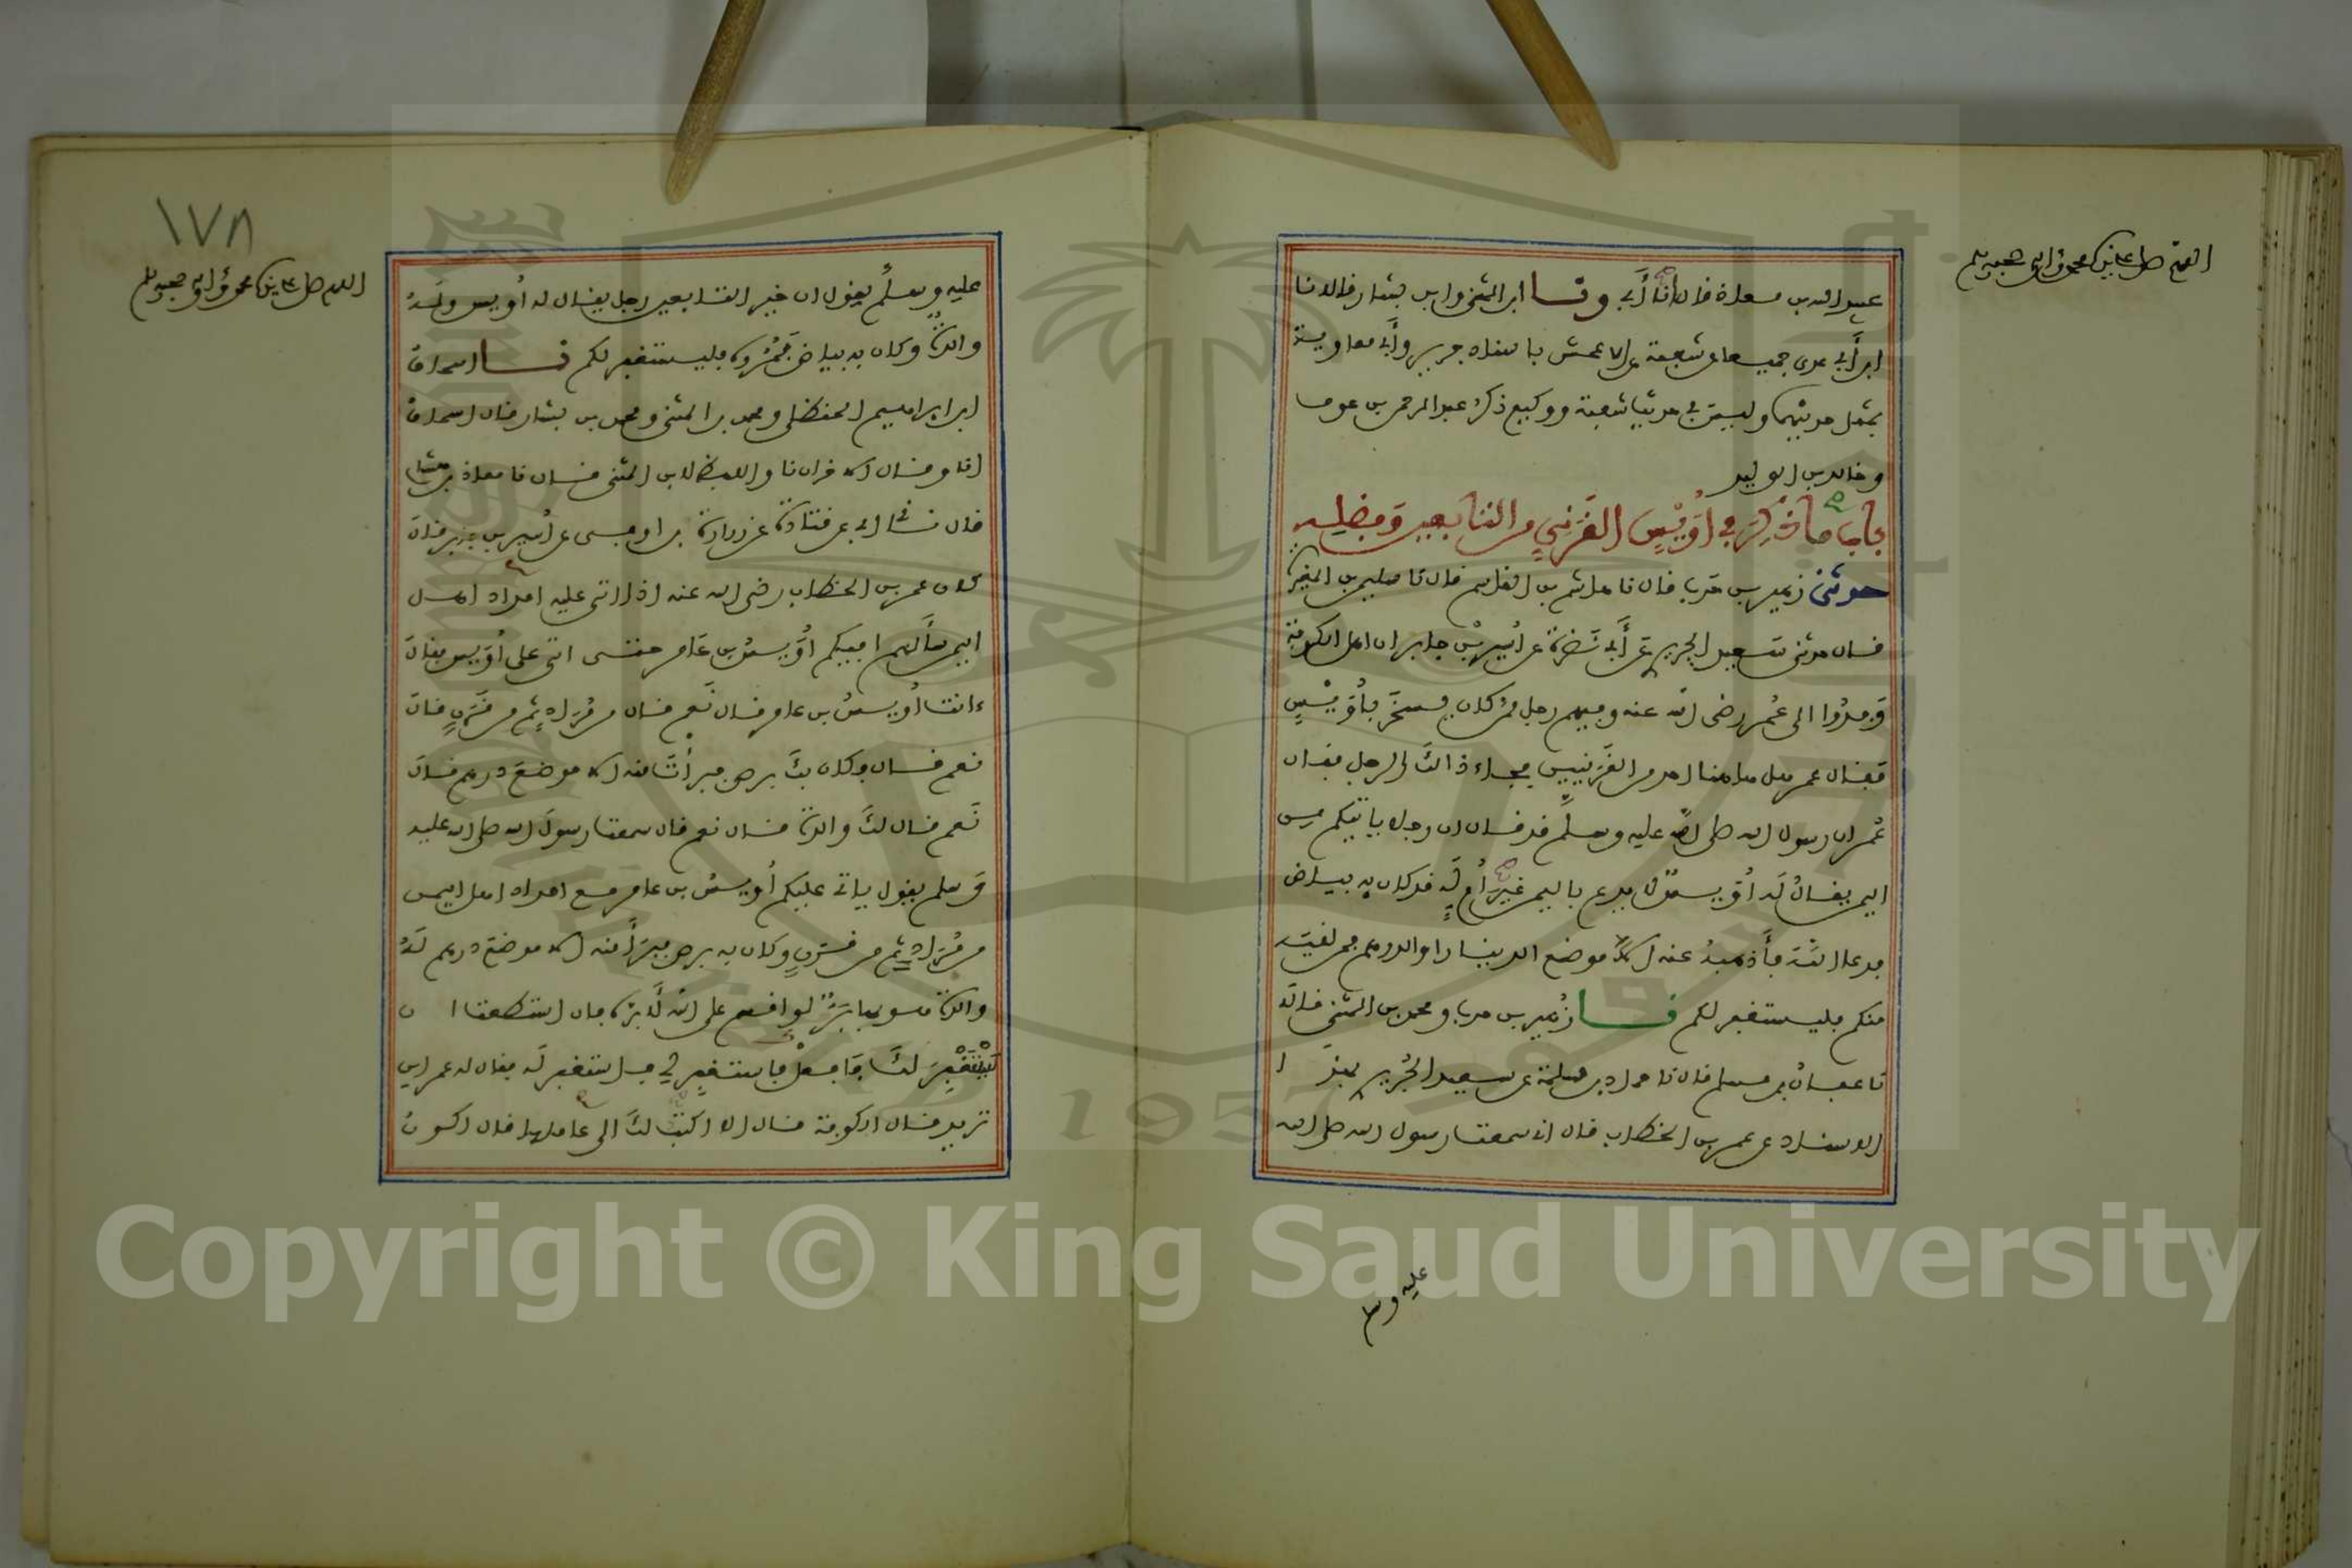 اللهم صل على نبيك محمد وءاله وصحبه وسلم
عبيد الله بن معاذ قال نا أبي ونا ابن المثنى وابن بشار قالا نا
ابن أبي عدي جميعا عن شعبة عن الاعمش باسناد جرير وأبي معاوية
بمثل حديثهما وليس في حديث شعبة ووكيع ذكر عبد الرحمن بن عوف
وخالد بن الوليد
باب ما ذكر في أويس القرني من التابعين وفضله
حدثني زهير بن حرب قال نا هاشم بن القاسم قال نا سليمن بن المغيرة
قال حدثني سعيد الجريري عن أبي نضرة عن أسير بن جابر ان اهل الكوفة
وفدوا الى عمر رضي الله عنه وفيهم رجل ممن كان يسخر بأويس
فقال عمر هل هاهنا احد من القرنيين فجاء ذالك الرجل فقال
عمر ان رسول الله صلى الله عليه وسلم قد قال ان رجلا ياتيكم من
اليمن يقال له أويس لا يدع باليمن غير أم له قد كان به بياض
فدعا الله فأذهبه عنه الا موضع الدينار او الدرهم فمن لقيه
منكم فليستغفر لكم نا زهير بن حرب ومحمد بن المثنى قالا
نا عفان بن مسلم قال نا حماد بن سلمة عن سعيد الجريري بهذا
الاسناد عن عمر بن الخطاب قال اني سمعت رسول الله صلى الله
عليه وسلم
١٧٨
اللهم صل على نبيك محمد وءاله وصحبه وسلم
عليه وسلم يقول ان خير التابعين رجل يقال له أويس وله
والدة وكان به بياض فمروه فليستغفر لكم نا اسحاق
ابن ابراهيم الحنظلي ومحمد بن المثنى ومحمد بن بشار قال اسحاق
انا وقال الاخران نا واللفظ لابن المثنى قال نا معاذ بن هشام
قال ثني ابي عن قتادة عن زرارة بن اوفى عن أسير بن جابر قال
كان عمر بن الخطاب رضي الله عنه اذا اتى عليه امداد اهل
اليمن سألهم افيكم أويس بن عامر حتى اتى على أويس فقال
ءانت أويس بن عامر قال نعم قال من مراد ثم من قرن قال
نعم قال وكان بك برص فبرأت منه الا موضع درهم قال
نعم قال لك والدة قال نعم قال سمعت رسول الله صلى الله عليه
وسلم يقول ياتي عليكم أويس بن عامر مع امداد اهل اليمن
من مراد ثم من قرن وكان به برص فبرأ منه الا موضع درهم له
والدة هو بها بر لو اقسم على الله لأبره فان استطعت ان
يستغفر لك فافعل فاستغفر لي فاستغفر له فقال له عمر اين
تريد قال الكوفة قال الا اكتب لك الى عاملها قال اكون
1957
Copyright © King Saud University